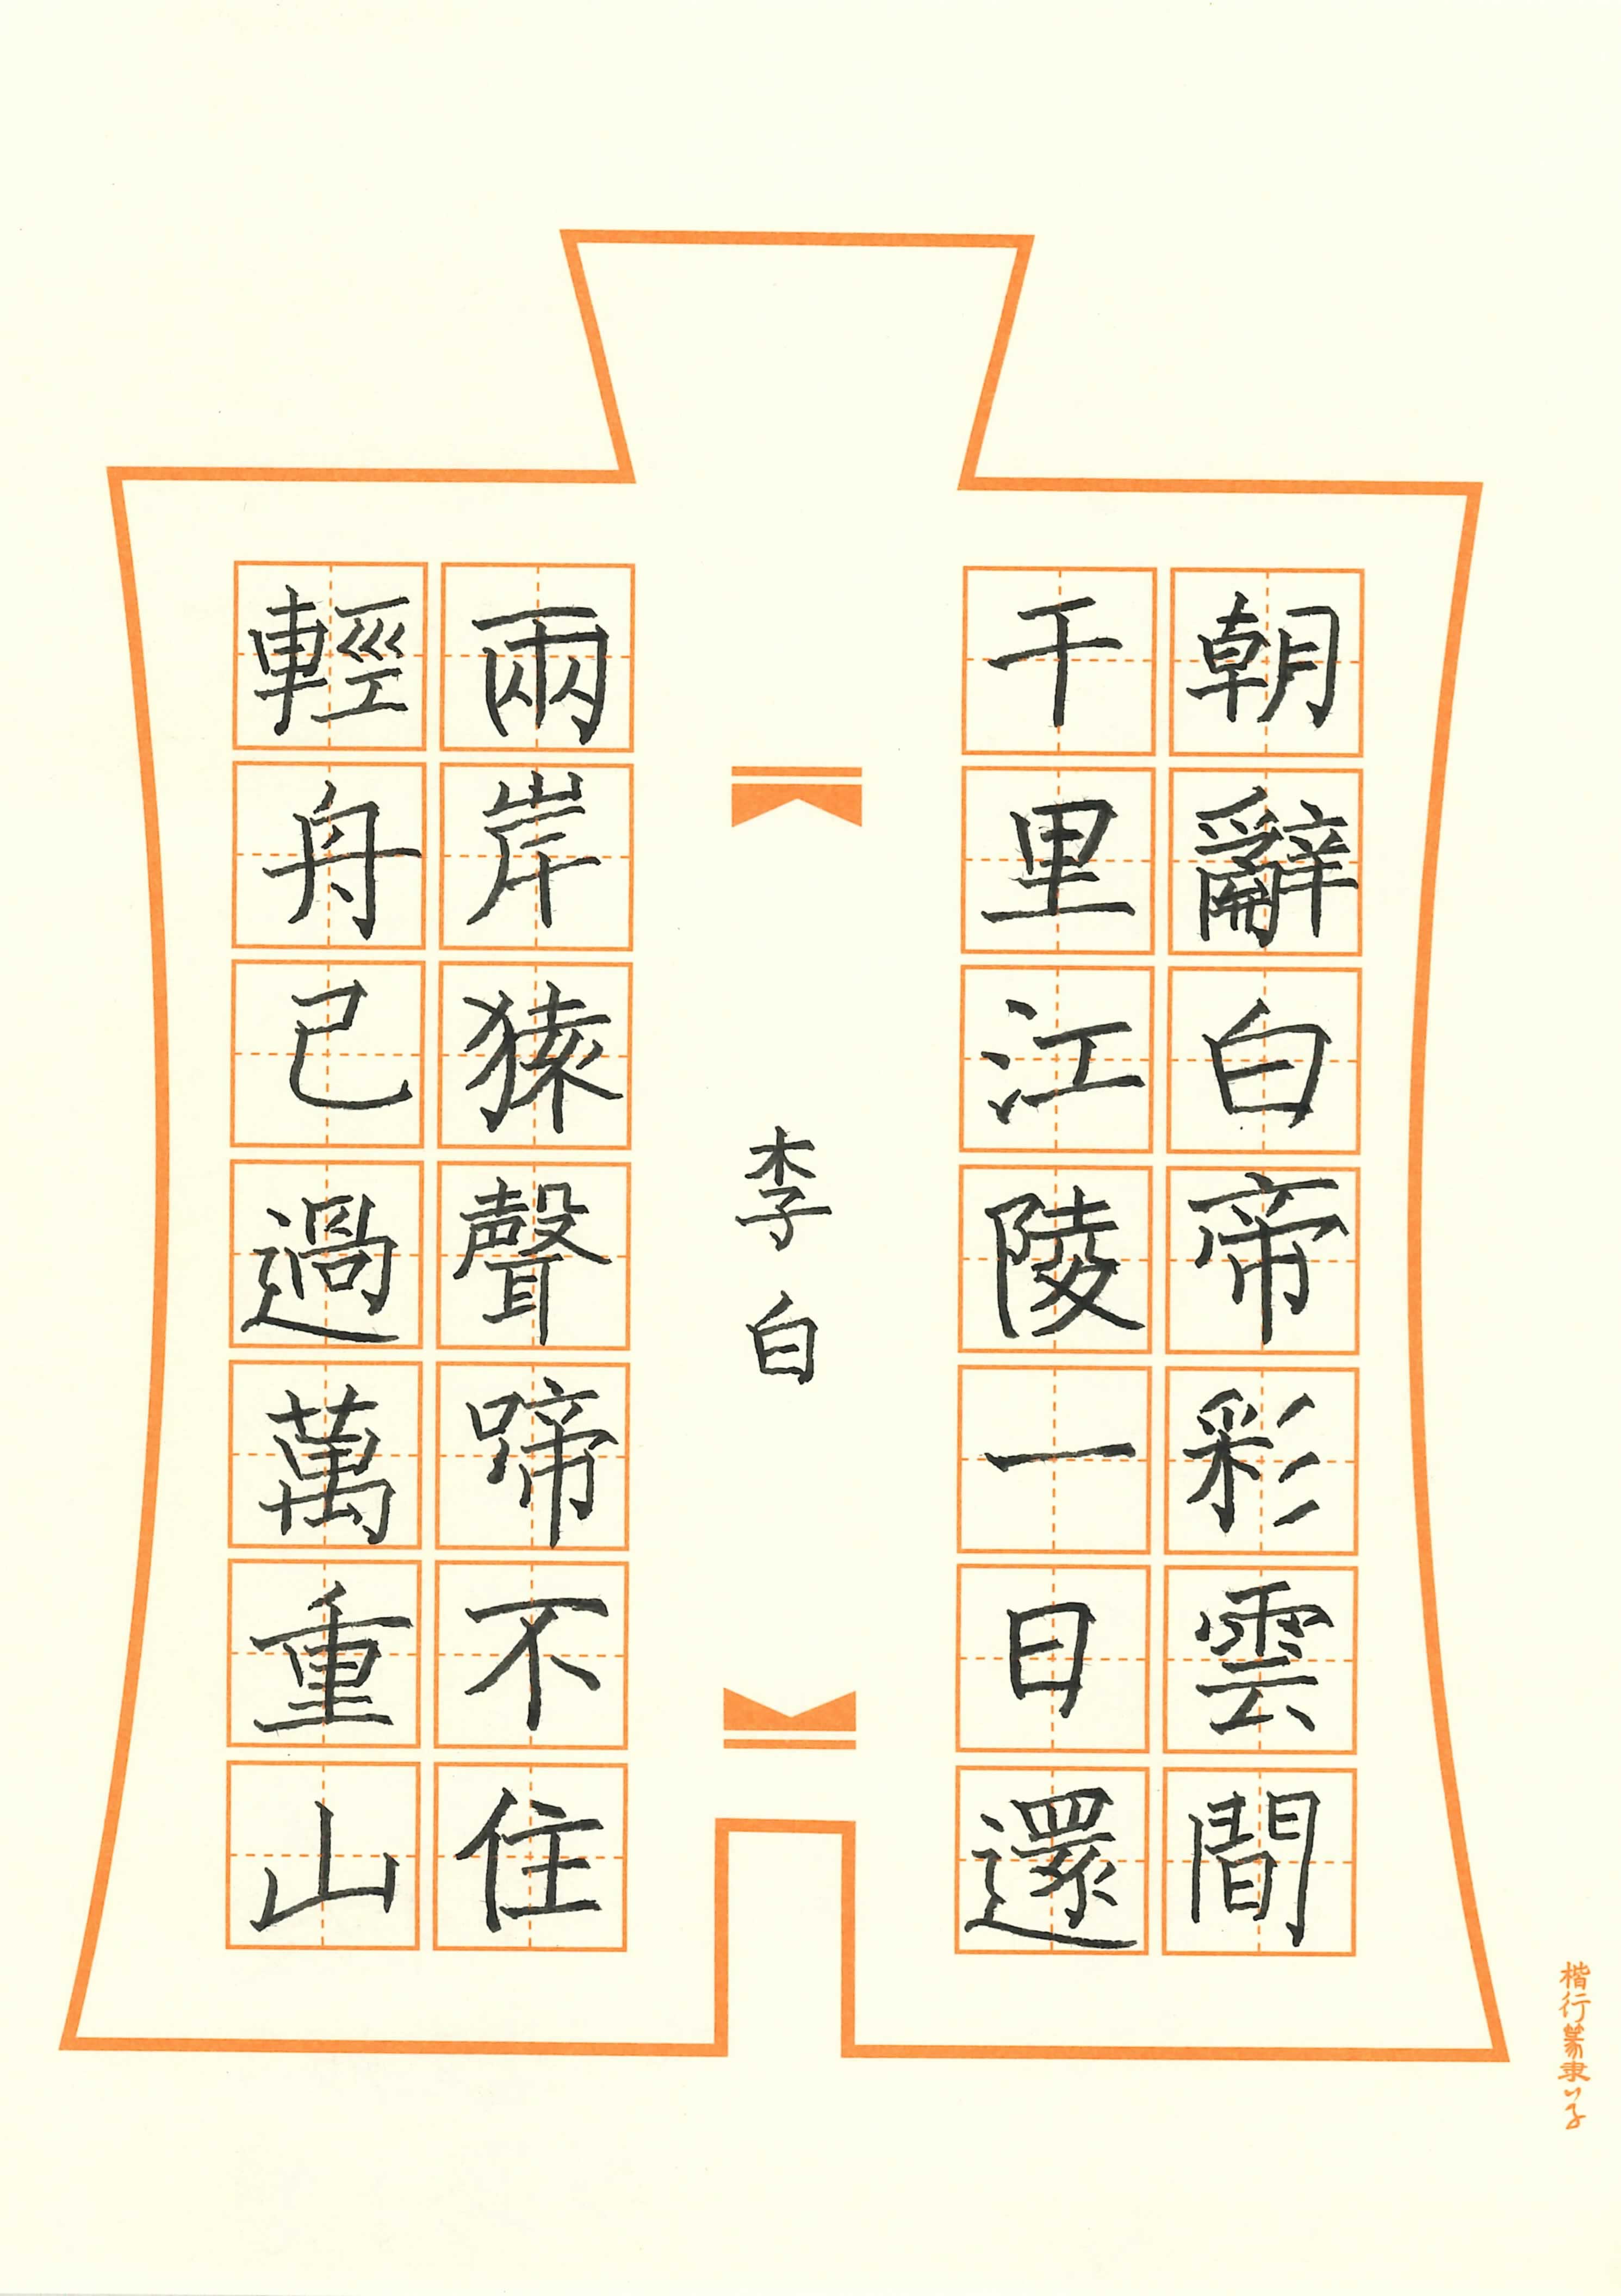 朝辭白帝彩雲間
千里江陵一日還
李白
兩岸猿聲啼不住
輕舟已過萬重山
楷行篆隶